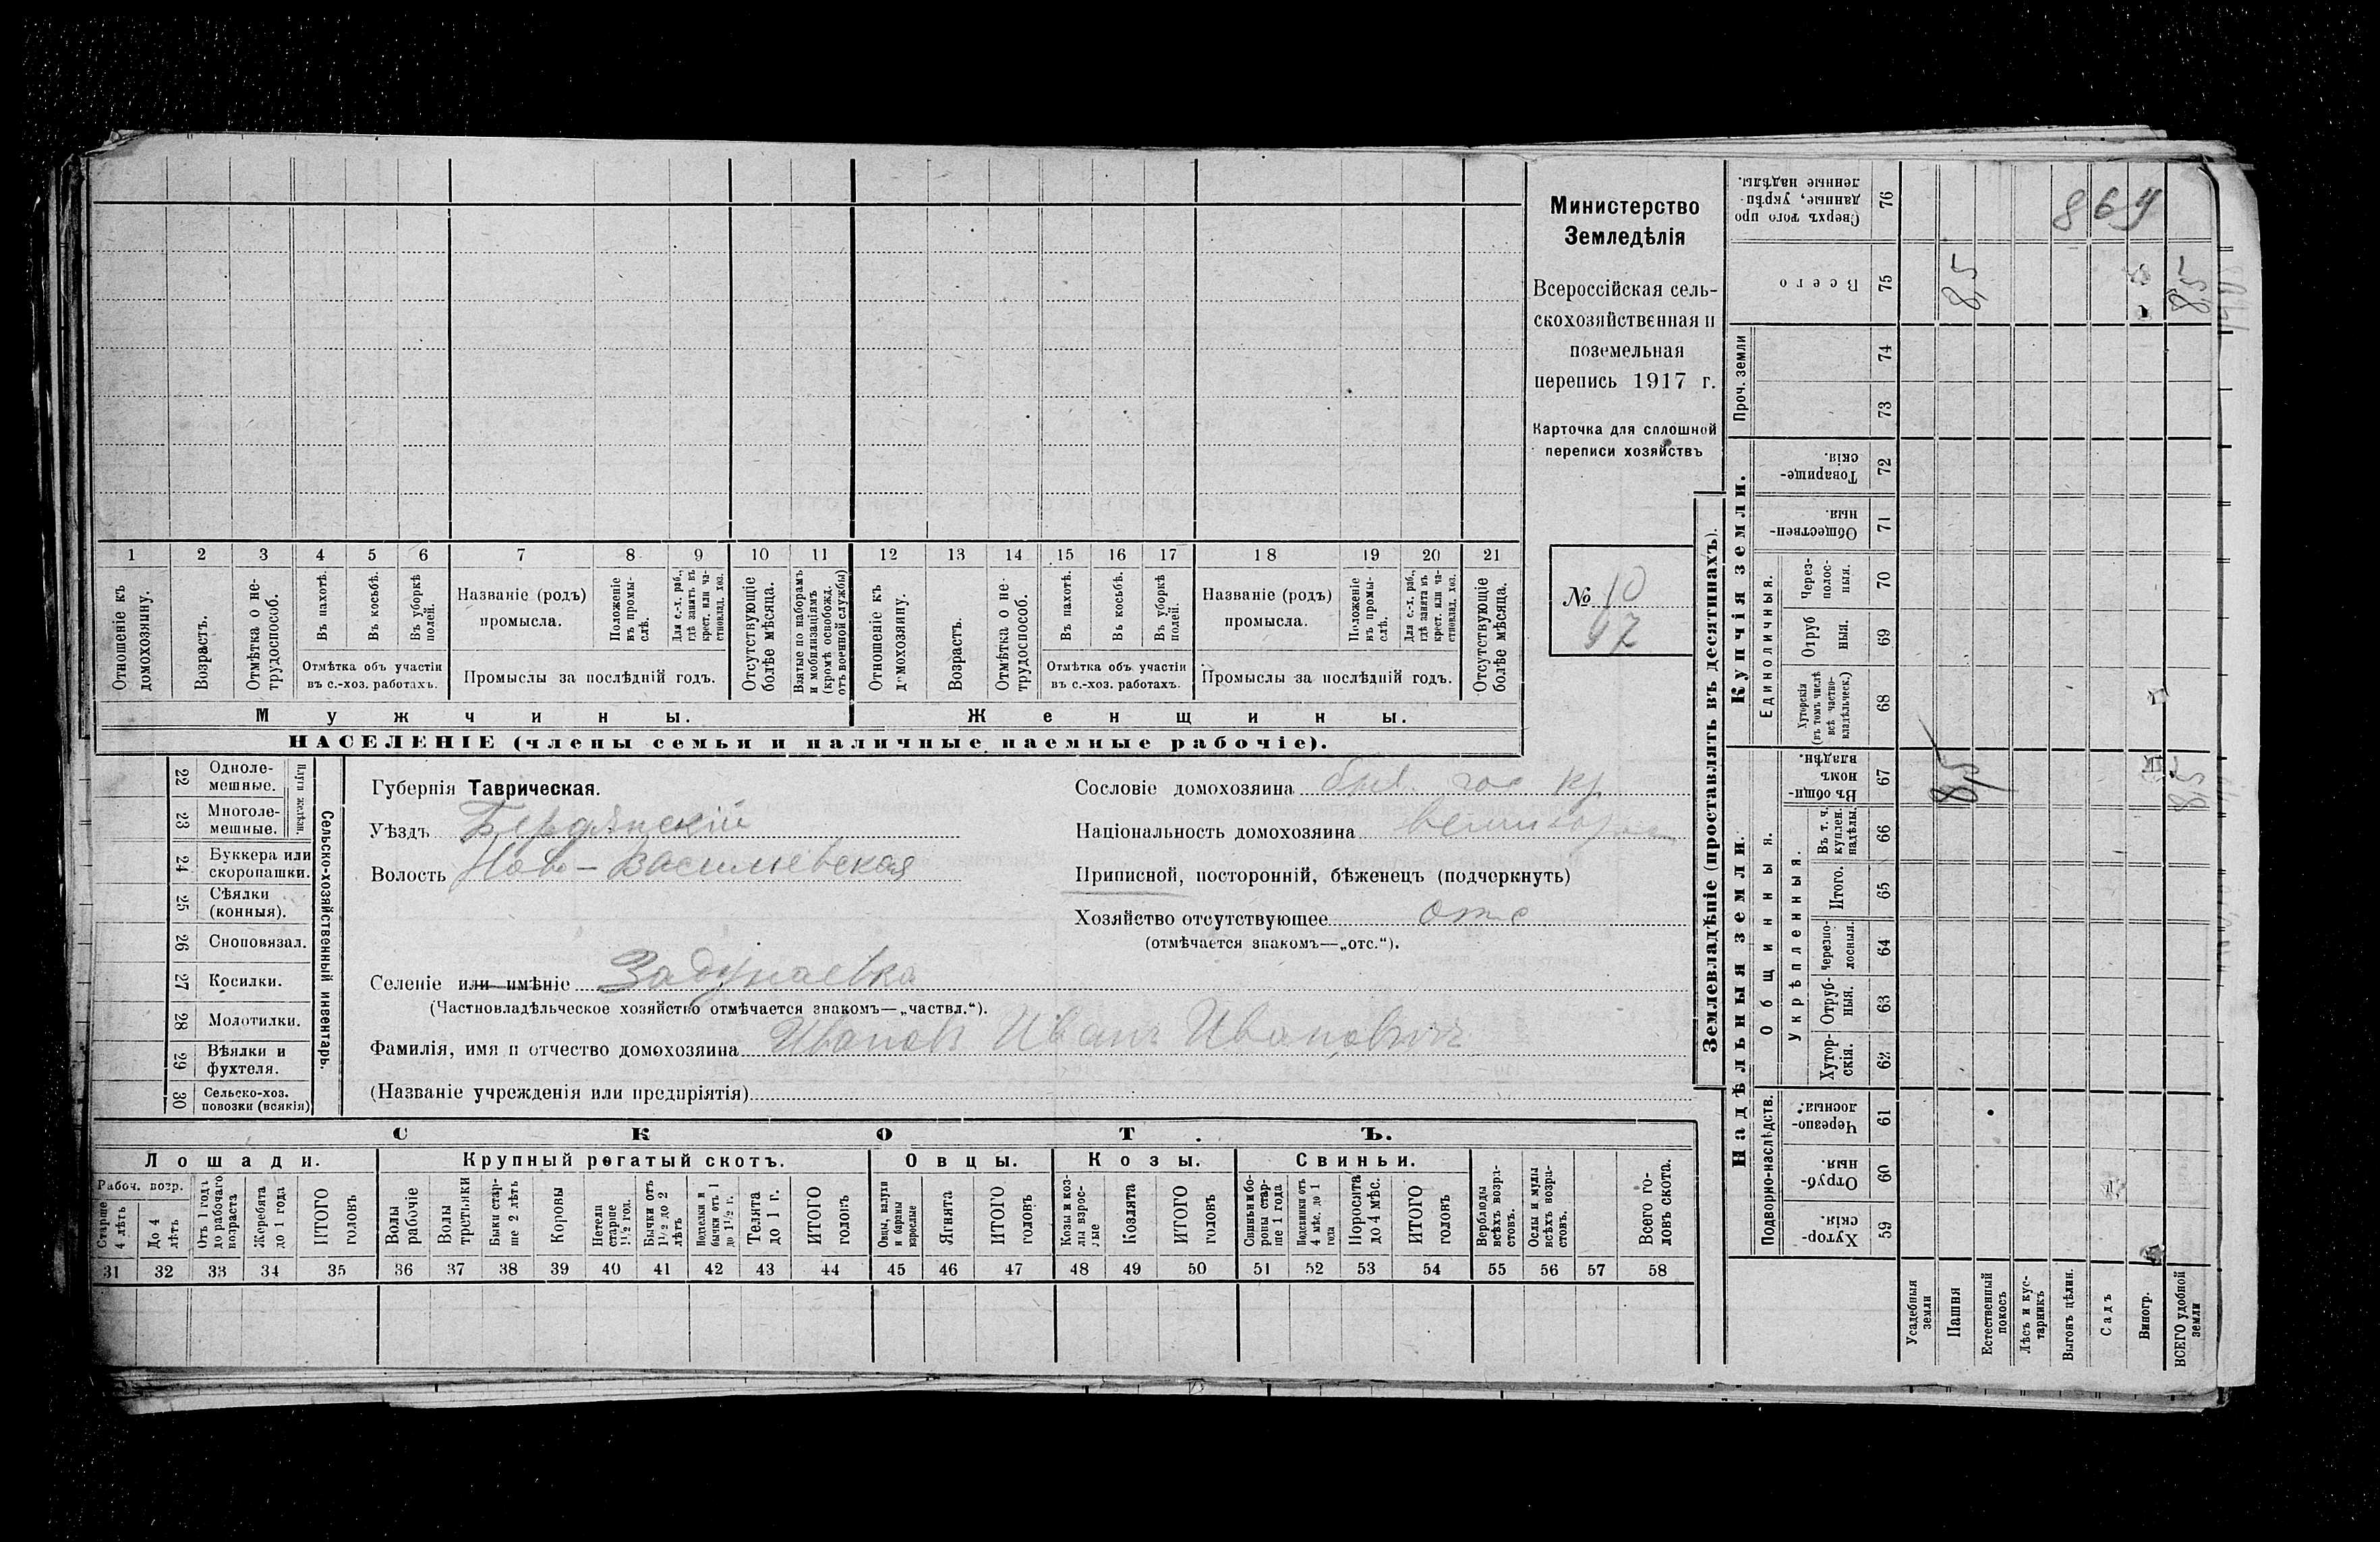 Министерство
Земледѣлія
Всероссійская сель-
скохозяйственная и
поземельная
перепись 1917 г.
Карточка для сплошной
переписи хозяйствъ
№ 10
47
1 2 3 4 5 6 7 8 9 10 11 12 13 14 15 16 17 18 19 20 21
Отношеніе къ домохозяину.
Возрастъ.
Отмѣтка о не-трудоспособ.
Въ пахотѣ.
Въ косьбѣ.
Въ уборкѣ полей.
Отмѣтка объ участіи
въ с.-хоз. работахъ.
Названіе (родъ)
промысла.
Положеніе въ промы-слѣ.
Для с.-х. раб., гдѣ занятъ въ крест. или ча-стновлад. хоз.
Промыслы за послѣдній годъ.
Отсутствующіе болѣе мѣсяца.
Взятые по наборамъ и мобилизаціямъ (кромѣ освобожд. отъ военной службы)
Отношеніе къ домохозяину.
Возрастъ.
Отмѣтка о не-трудоспособ.
Въ пахотѣ.
Въ косьбѣ.
Въ уборкѣ полей.
Отмѣтка объ участіи
въ с.-хоз. работахъ.
Названіе (родъ)
промысла.
Положеніе въ промы-слѣ.
Для с.-х. раб., гдѣ занята въ крест. или ча-стновлад. хоз.
Промыслы за послѣдній годъ.
Отсутствующіе болѣе мѣсяца.
Мужчины.
Женщины.
НАСЕЛЕНІЕ (члены семьи и наличные наемные рабочіе).
22 Одноле-мешные.
23 Многоле-мешные.
Плуги желѣзн.
24 Буккера или скоропашки.
25 Сѣялки (конныя).
26 Сноповязал.
27 Косилки.
28 Молотилки.
29 Вѣялки и фухтеля.
30 Сельско-хоз. повозки (всякія)
Сельско-хозяйственный инвентарь.
Губернія Таврическая.
Уѣздъ Бердянскій
Волость Ново-Васильевская
Сословіе домохозяина быв. гос кр.
Національность домохозяина великоросс
Приписной, посторонній, бѣженецъ (подчеркнуть)
Хозяйство отсутствующее отс
(отмѣчается знакомъ—„отс.“).
Селеніе или имѣніе Задунаевка
(Частновладѣльческое хозяйство отмѣчается знакомъ—„частвл.“).
Фамилія, имя и отчество домохозяина Ивановъ Иванъ Ивановичъ
(Названіе учрежденія или предпріятія)
СКОТЪ.
Лошади.
Крупный рогатый скотъ.
Овцы.
Козы.
Свиньи.
Рабоч. возр.
Старше 4 лѣтъ
До 4 лѣтъ
Отъ 1 года до рабочаго возраста
Жеребята до 1 года
ИТОГО головъ
Волы рабочіе
Волы третьяки
Быки стар-ше 2 лѣтъ
Коровы
Нетели старше 1½ год.
Бычки отъ 1½ до 2 лѣтъ
Нетелки и бычки отъ 1 до 1½ г.
Телята до 1 г.
ИТОГО головъ
Овцы, валухи и бараны взрослые
Ягнята
ИТОГО головъ
Козы и коз-лы взрос-лые
Козлята
ИТОГО головъ
Свиньи и бо-ровы стар-ше 1 года
Подсвинки отъ 4 мѣс. до 1 года
Поросята до 4 мѣс.
ИТОГО головъ
Верблюды всѣхъ возра-стовъ.
Ослы и мулы всѣхъ возра-стовъ.
Всего го-ловъ скота.
31 32 33 34 35 36 37 38 39 40 41 42 43 44 45 46 47 48 49 50 51 52 53 54 55 56 57 58
Землевладѣніе (проставлять въ десятинахъ).
Надѣльныя земли.
Купчія земли.
Проч. земли
Подворно-наслѣдств.
Общинныя.
Укрѣпленныя.
Единоличныя.
Сверхъ того про данные, укрѣп-ленные надѣлы. 76
Всего 75
74
73
Товарище-скія. 72
Обществен-ныя. 71
Через-полос-ныя. 70
Отруб ныя. 69
Хуторскія (въ томъ числѣ всѣ частно-владѣльческ.) 68
Въ общи-номъ владѣн. 67
Въ т. ч. куплен. надѣлы. 66
Итого. 65
Черезпо-лосныя. 64
Отруб-ныя. 63
Хутор-скія. 62
Черезпо-лосныя. 61
Отруб-ныя. 60
Хутор-скія. 59
Усадебныя земли
Пашня
Естественный покосъ
Лѣсъ и кус-тарникъ
Выгонъ цѣлин.
Садъ
Виногр.
ВСЕГО удобной земли
864
8,5
8,5
8,5
8,5